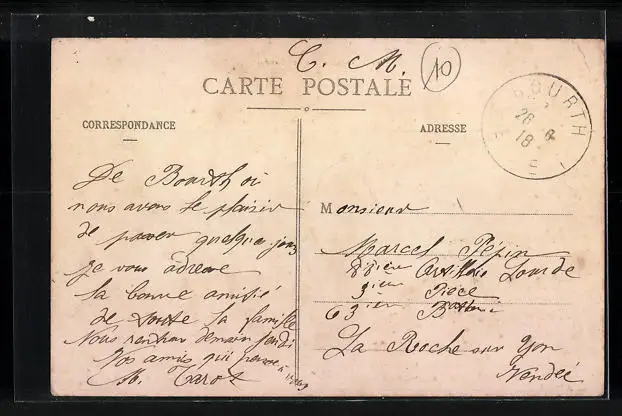 C. M. 10
CARTE POSTALE
CORRESPONDANCE
ADRESSE
BOURTH
26
18
De Bourth où
nous avons le plaisir
de passer quelque jours
je vous adresse
la bonne amitié
de toute la famille
Nous rentrons demain jeudi
Vos amis qui pense à vous
M. Tarot
Monsieur
Marcel Pépin
88ieme Artillerie Lourde
3ieme Pièce
63ieme Batterie
La Roche sur Yon
Vendée